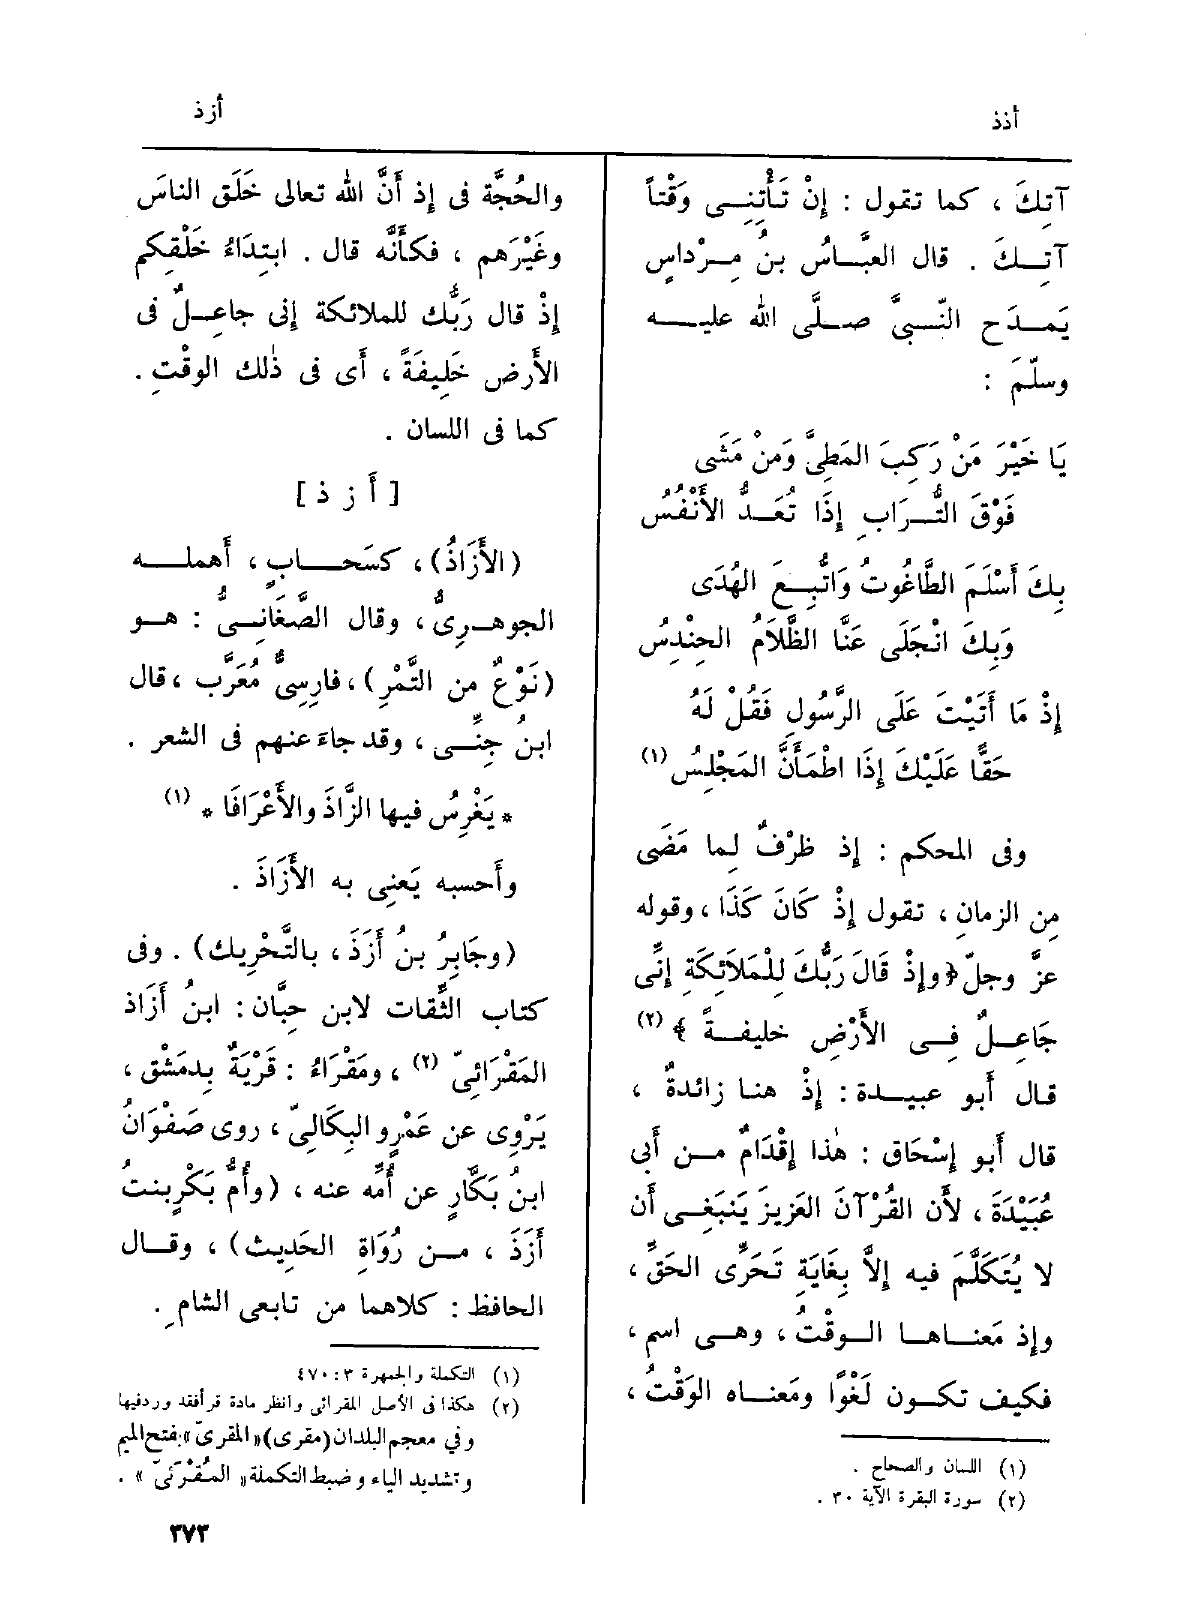 أذذ
أزذ
آتِكَ ، كما تقول : إِنْ تَأْتِنِى وَقْتاً
آتِكَ . قال العبَّاسُ بنُ مِرْداسٍ
يَمدَح النّبىَّ صلَّى الله عليه
وسلّمَ :
يَا خَيْرَ مَنْ رَكِبَ المَطِىَّ وَمَنْ مَشَى
فَوْقَ التُّرَابِ إِذَا تُعَدُّ الأَنْفُسُ
بِكَ أَسْلَمَ الطَّاغُوتُ وَاتُّبِعَ الهُدَى
وَبِكَ انْجَلَى عَنَّا الظَّلَامُ الحِنْدِسُ
إِذْ مَا أَتَيْتَ عَلَى الرَّسُولِ فَقُلْ لَهُ
حَقًّا عَلَيْكَ إِذَا اطْمَأَنَّ المَجْلِسُ (١)
وفى المحكم : إِذ ظرْفٌ لِما مَضَى
مِن الزمانِ ، تقول إِذْ كَانَ كَذَا ، وقوله
عزَّ وجلّ ﴿وإِذْ قَالَ رَبُّكَ لِلْمَلَائِكَةِ إِنِّى
جَاعِلٌ فِى الأَرْضِ خليفةً﴾ (٢)
قال أَبو عبيدة : إِذْ هنا زائدةٌ ،
قال أَبو إِسْحَاق : هٰذا إِقْدَامٌ من أَبى
عُبَيْدَةَ ، لأَن القُرْآنَ العَزِيزَ يَنبَغِى أَن
لا يُتَكَلَّمَ فيه إِلاَّ بِغَايَةِ تَحَرِّى الحَقِّ ،
وإِذ مَعناها الوقْتُ ، وهى اسم ،
فكيف تكون لَغْوًا ومَعناه الوَقْتُ ،
(١) اللسان والصحاح .
(٢) سورة البقرة الآية ٣٠ .
والحُجَّة فى إِذ أَنَّ الله تعالى خَلَق الناسَ
وغَيْرَهم ، فكأَنَّه قال . ابتِدَاءُ خَلْقِكم
إِذْ قال رَبُّك للملائكة إِنى جاعِلٌ فى
الأَرض خَلِيفَةً ، أَى فى ذٰلك الوقْتِ .
كما فى اللسان .
[ أ ز ذ ]
(الأَزَاذُ) ، كسَحابٍ ، أَهمله
الجوهرِىُّ ، وقال الصَّغَانِىُّ : هو
(نَوْعٌ من التَّمْرِ) ، فارِسِىٌّ مُعَرَّب ، قال
ابنُ جِنِّى ، وقد جاءَ عنهم فى الشعر .
* يَغْرِسُ فيها الزَّاذَ والأَعْرَافَا * (١)
وأَحسبه يَعنِى به الأَزَاذَ .
(وجَابِرُ بنُ أَزَذَ ، بالتَّحْرِيك) . وفى
كتاب الثِّقات لابن حِبَّان : ابنُ أَزَاذ
المَقْرَائِىّ (٢) ، ومَقْرَاءُ : قَرْيَةٌ بِدمَشْق ،
يَرْوِى عن عَمْرٍو البِكَالِىّ ، روى صَفْوَانُ
ابنُ بَكَّارٍ عن أُمِّه عنه ، (وأُمُّ بَكْرٍ بنتُ
أَزَذَ ، من رُوَاةِ الحَدِيث) ، وقال
الحافظ : كلاهما من تابعى الشامِ .
(١) التكملة والجمهرة ٣ : ٤٧٠
(٢) هكذا فى الأصل المقرائى وانظر مادة قرأ فقد ورد فيها
وفي معجم البلدان (مقرى) « المقرىّ » بفتح الميم
وتشديد الياء وضبط التكملة « المُقْرَئىّ » .
٣٧٣